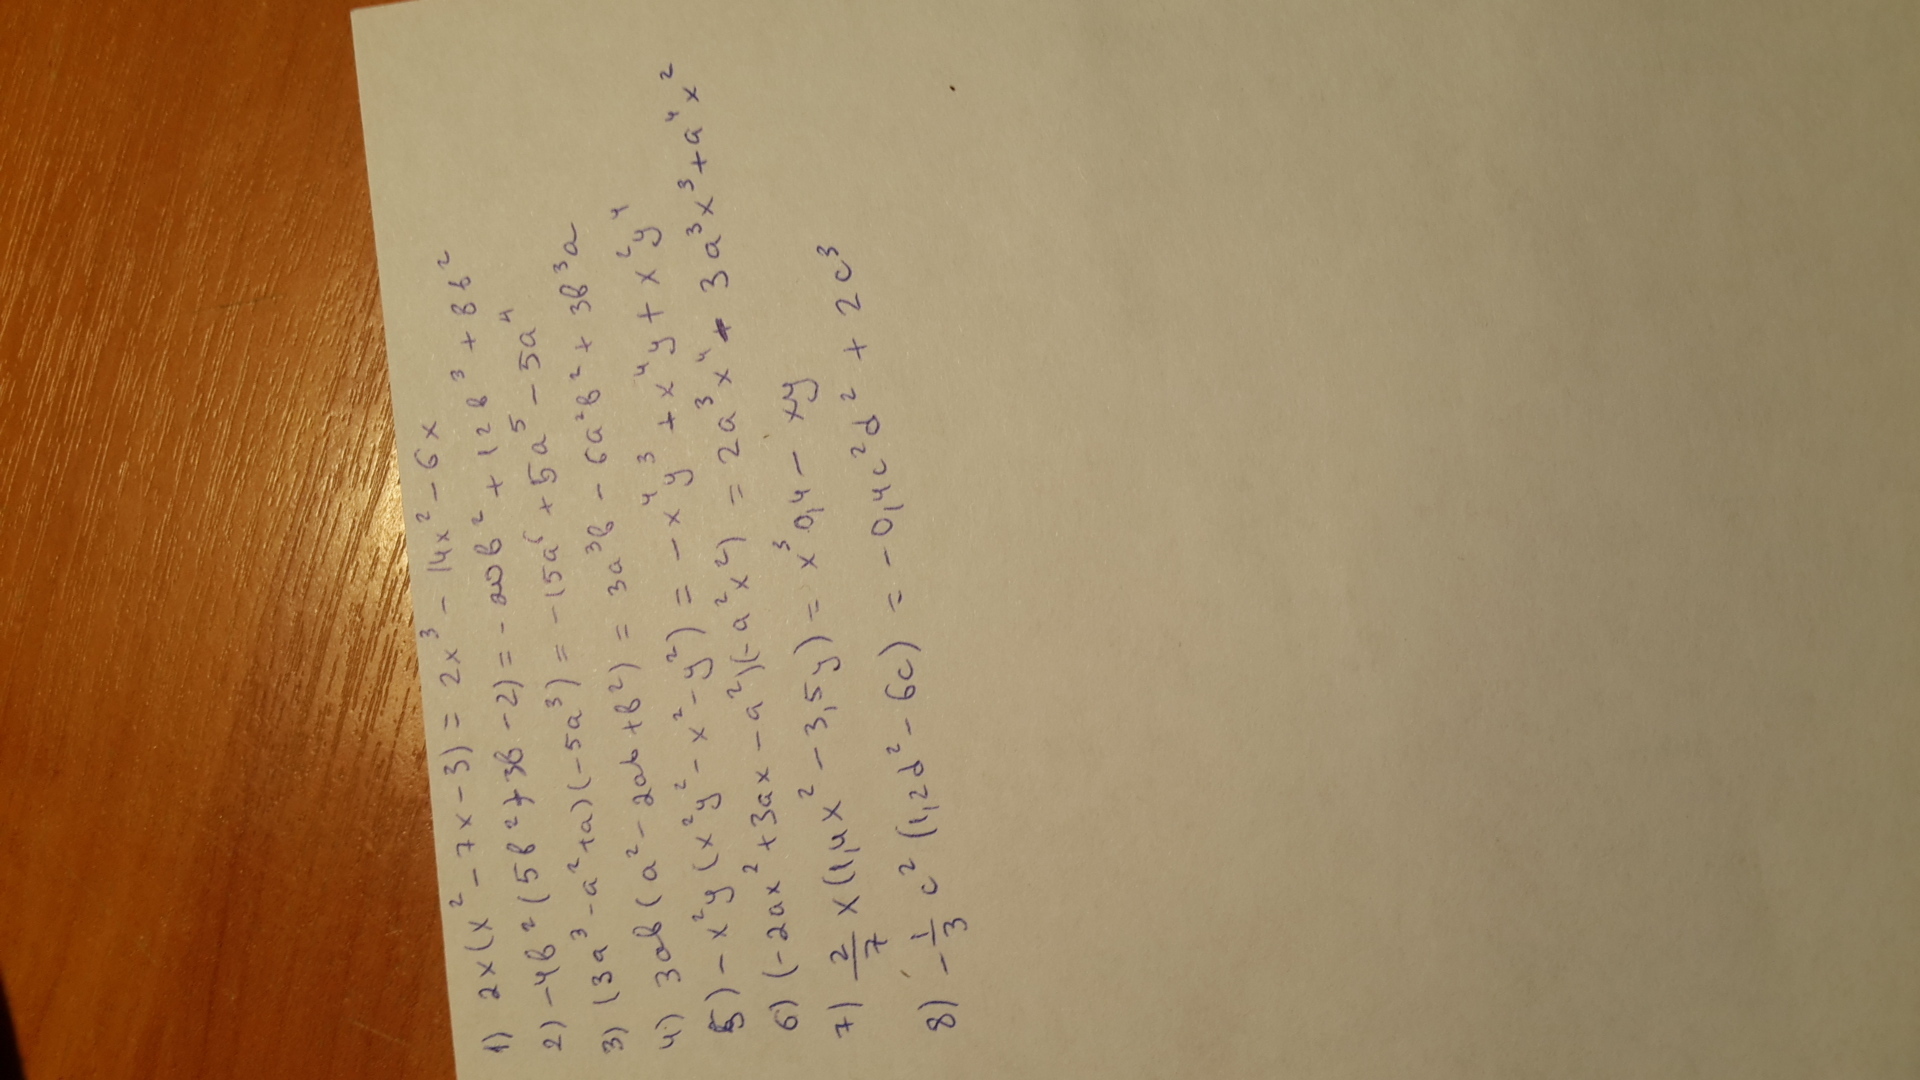 1) 2x(x² - 7x - 3) = 2x³ - 14x² - 6x
2) -4b²(5b² + 3b - 2) = - 20b² + 12b³ + 8b²
3) (3a³ - a² + a)(-5a³) = -15a⁶ + 5a⁵ - 5a⁴
4) 3ab(a² - 2ab + b²) = 3a³b - 6a²b² + 3b³a
5) - x²y(x²y² - x² - y²) = - x⁴y³ + x⁴y + x²y⁴
6) (-2ax² + 3ax - a²)(-a²x²) = 2a³x⁴ + 3a³x³ + a⁴x²
7) 2/7 x(1,4x² - 3,5y) = x³0,4 - xy
8) - 1/3 c²(1,2d² - 6c) = -0,4c²d² + 2c³